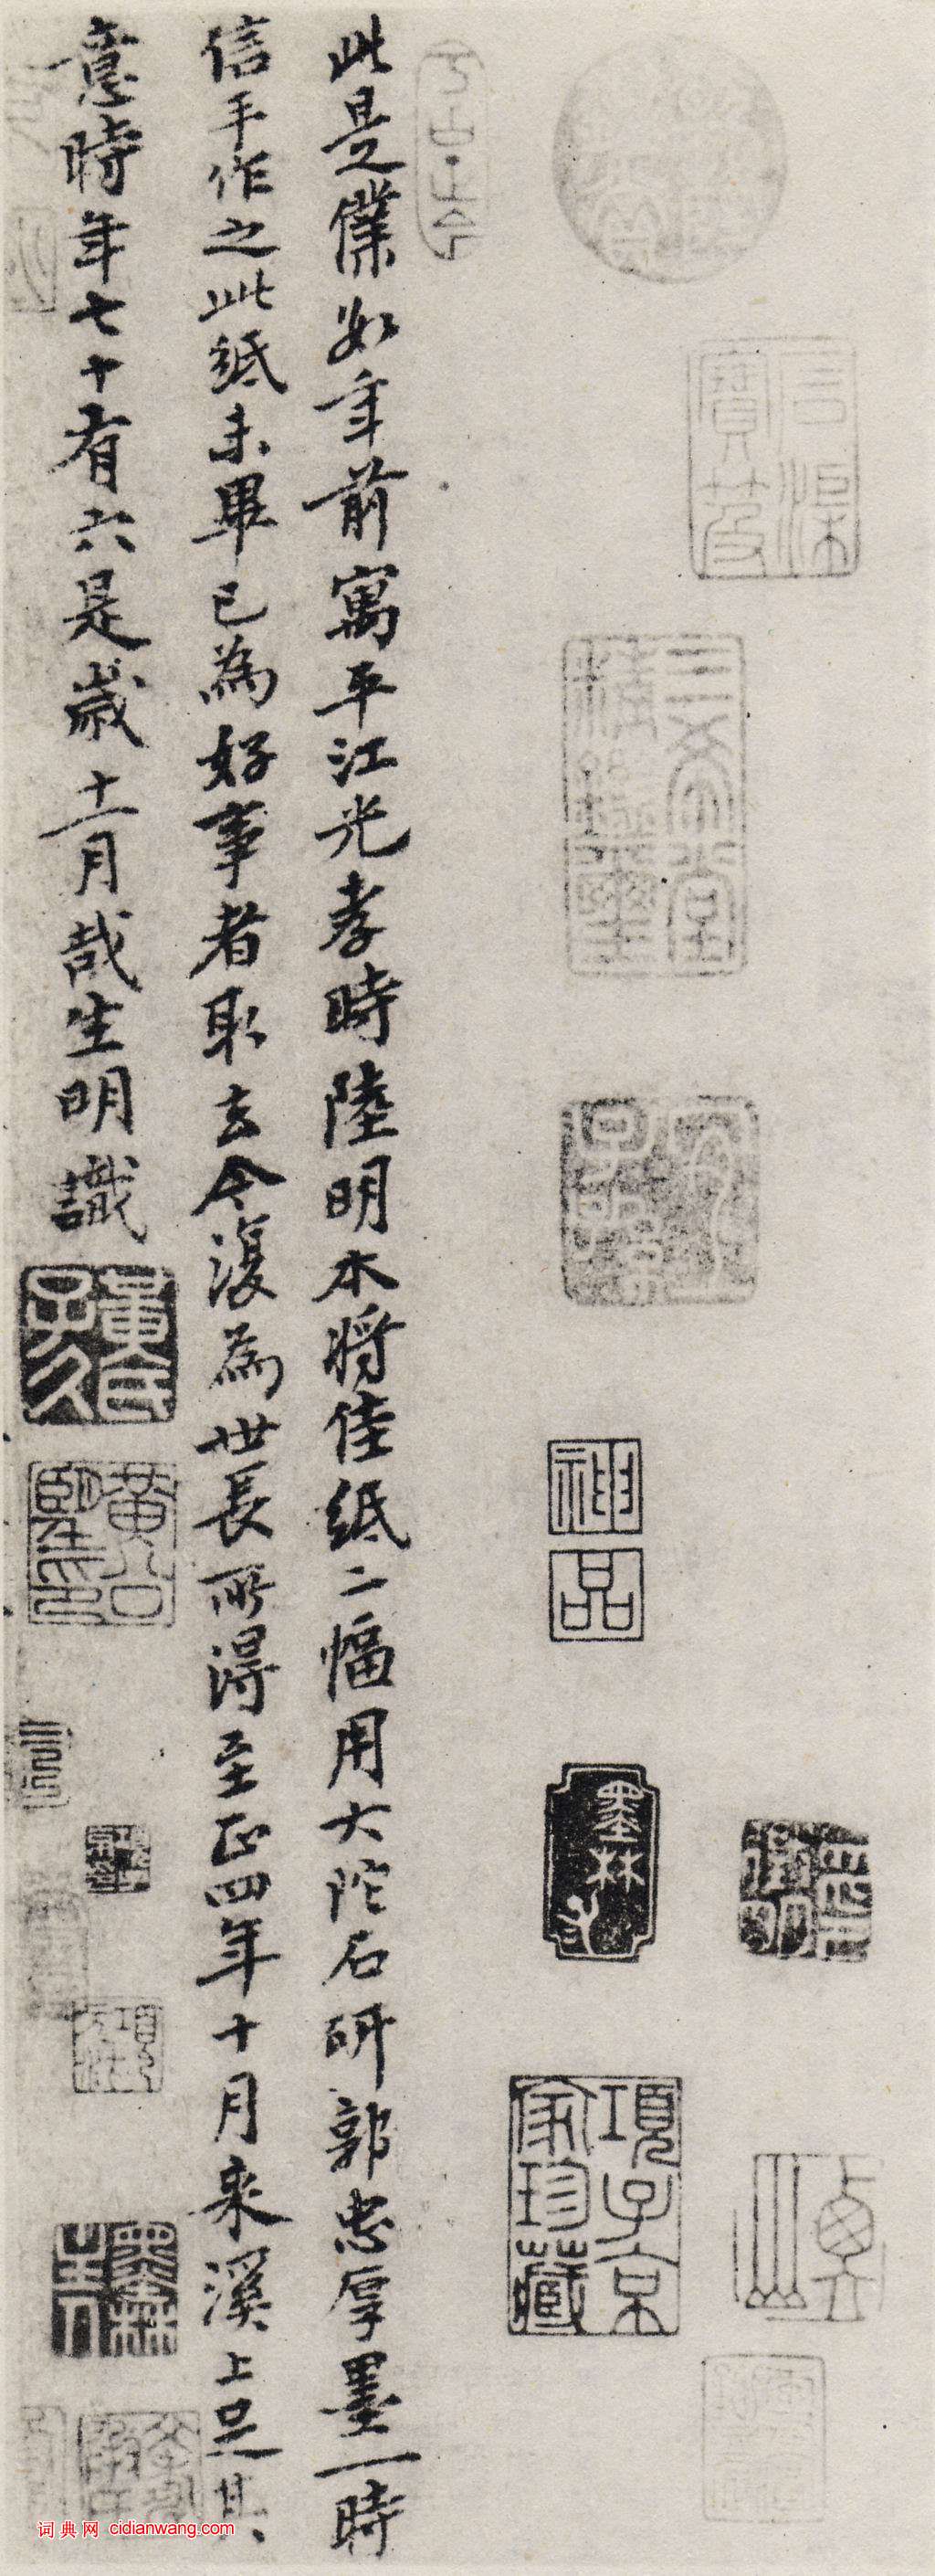 此是僕數年前寓平江光孝時陸明本將佳紙二幅用大陀石研郭忠厚墨一時
信手作之此紙未畢已為好事者取去今復為世長所得至正四年十月來溪上足其
意時年七十有六是歲十一月哉生明識
神
品
墨林
項子京
家珍藏
三希堂
精鑑璽
黃公
词典网 cidianwang.com